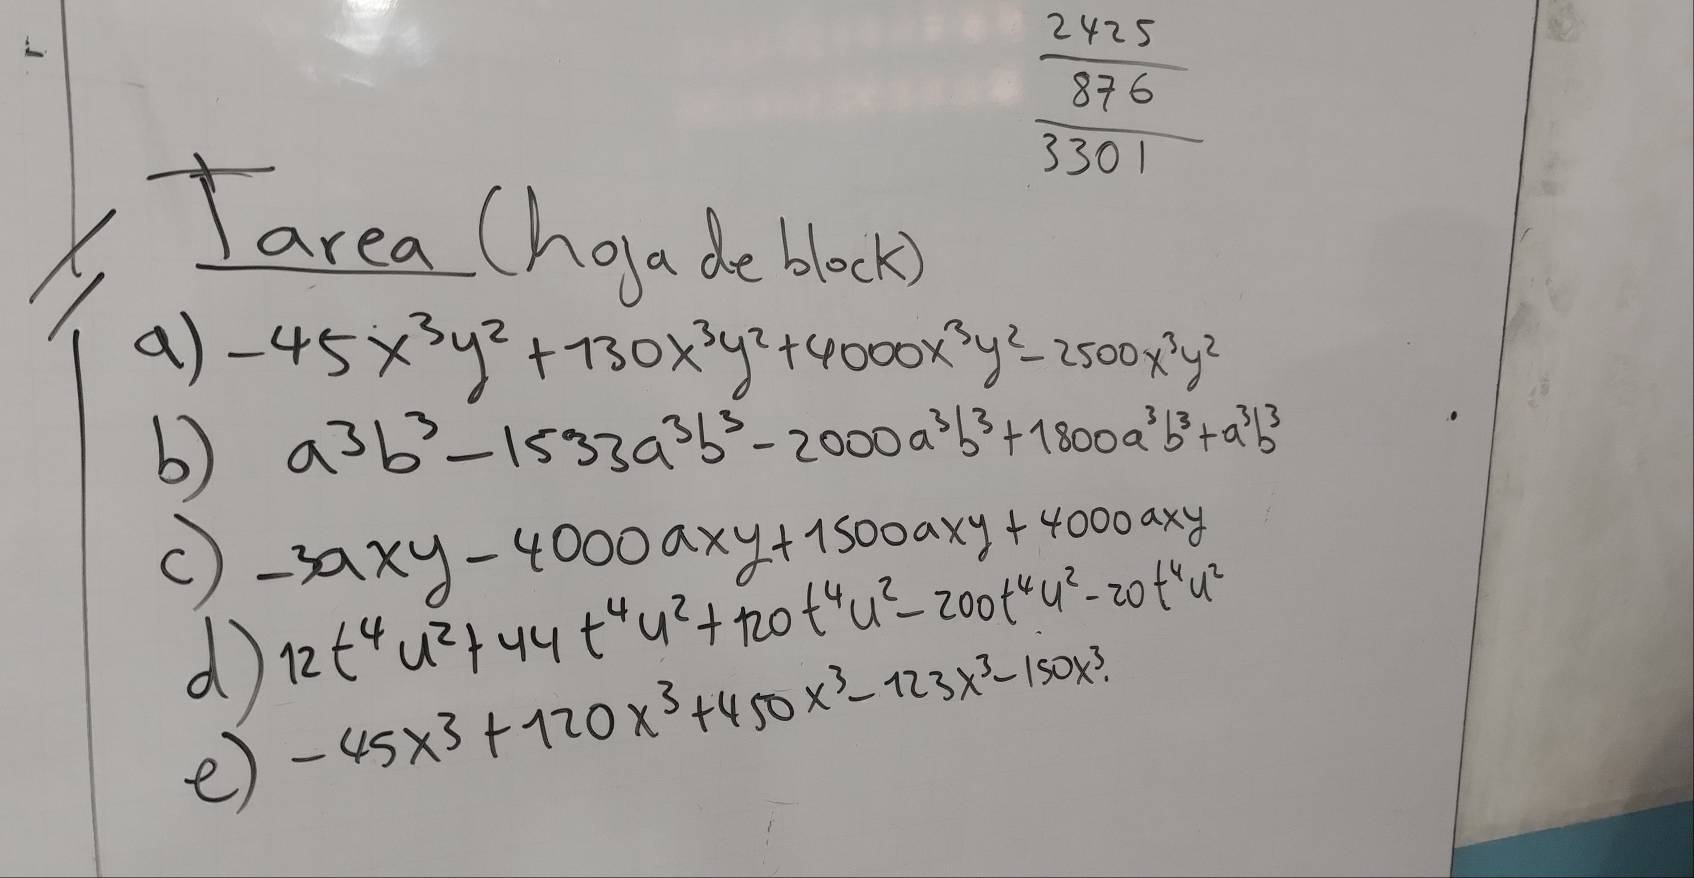 2425
876
3301
Tarea (hoja de block)
a) -45x³y² + 130x³y² + 4000x³y² - 2500x³y²
b) a³b³ - 1533a³b³ - 2000a³b³ + 1800a³b³ + a³b³
c) -3axy - 4000axy + 1500axy + 4000axy
d) 12t⁴u² + 44t⁴u² + 120t⁴u² - 200t⁴u² - 20t⁴u²
e) -45x³ + 120x³ + 450x³ - 123x³ - 150x³.